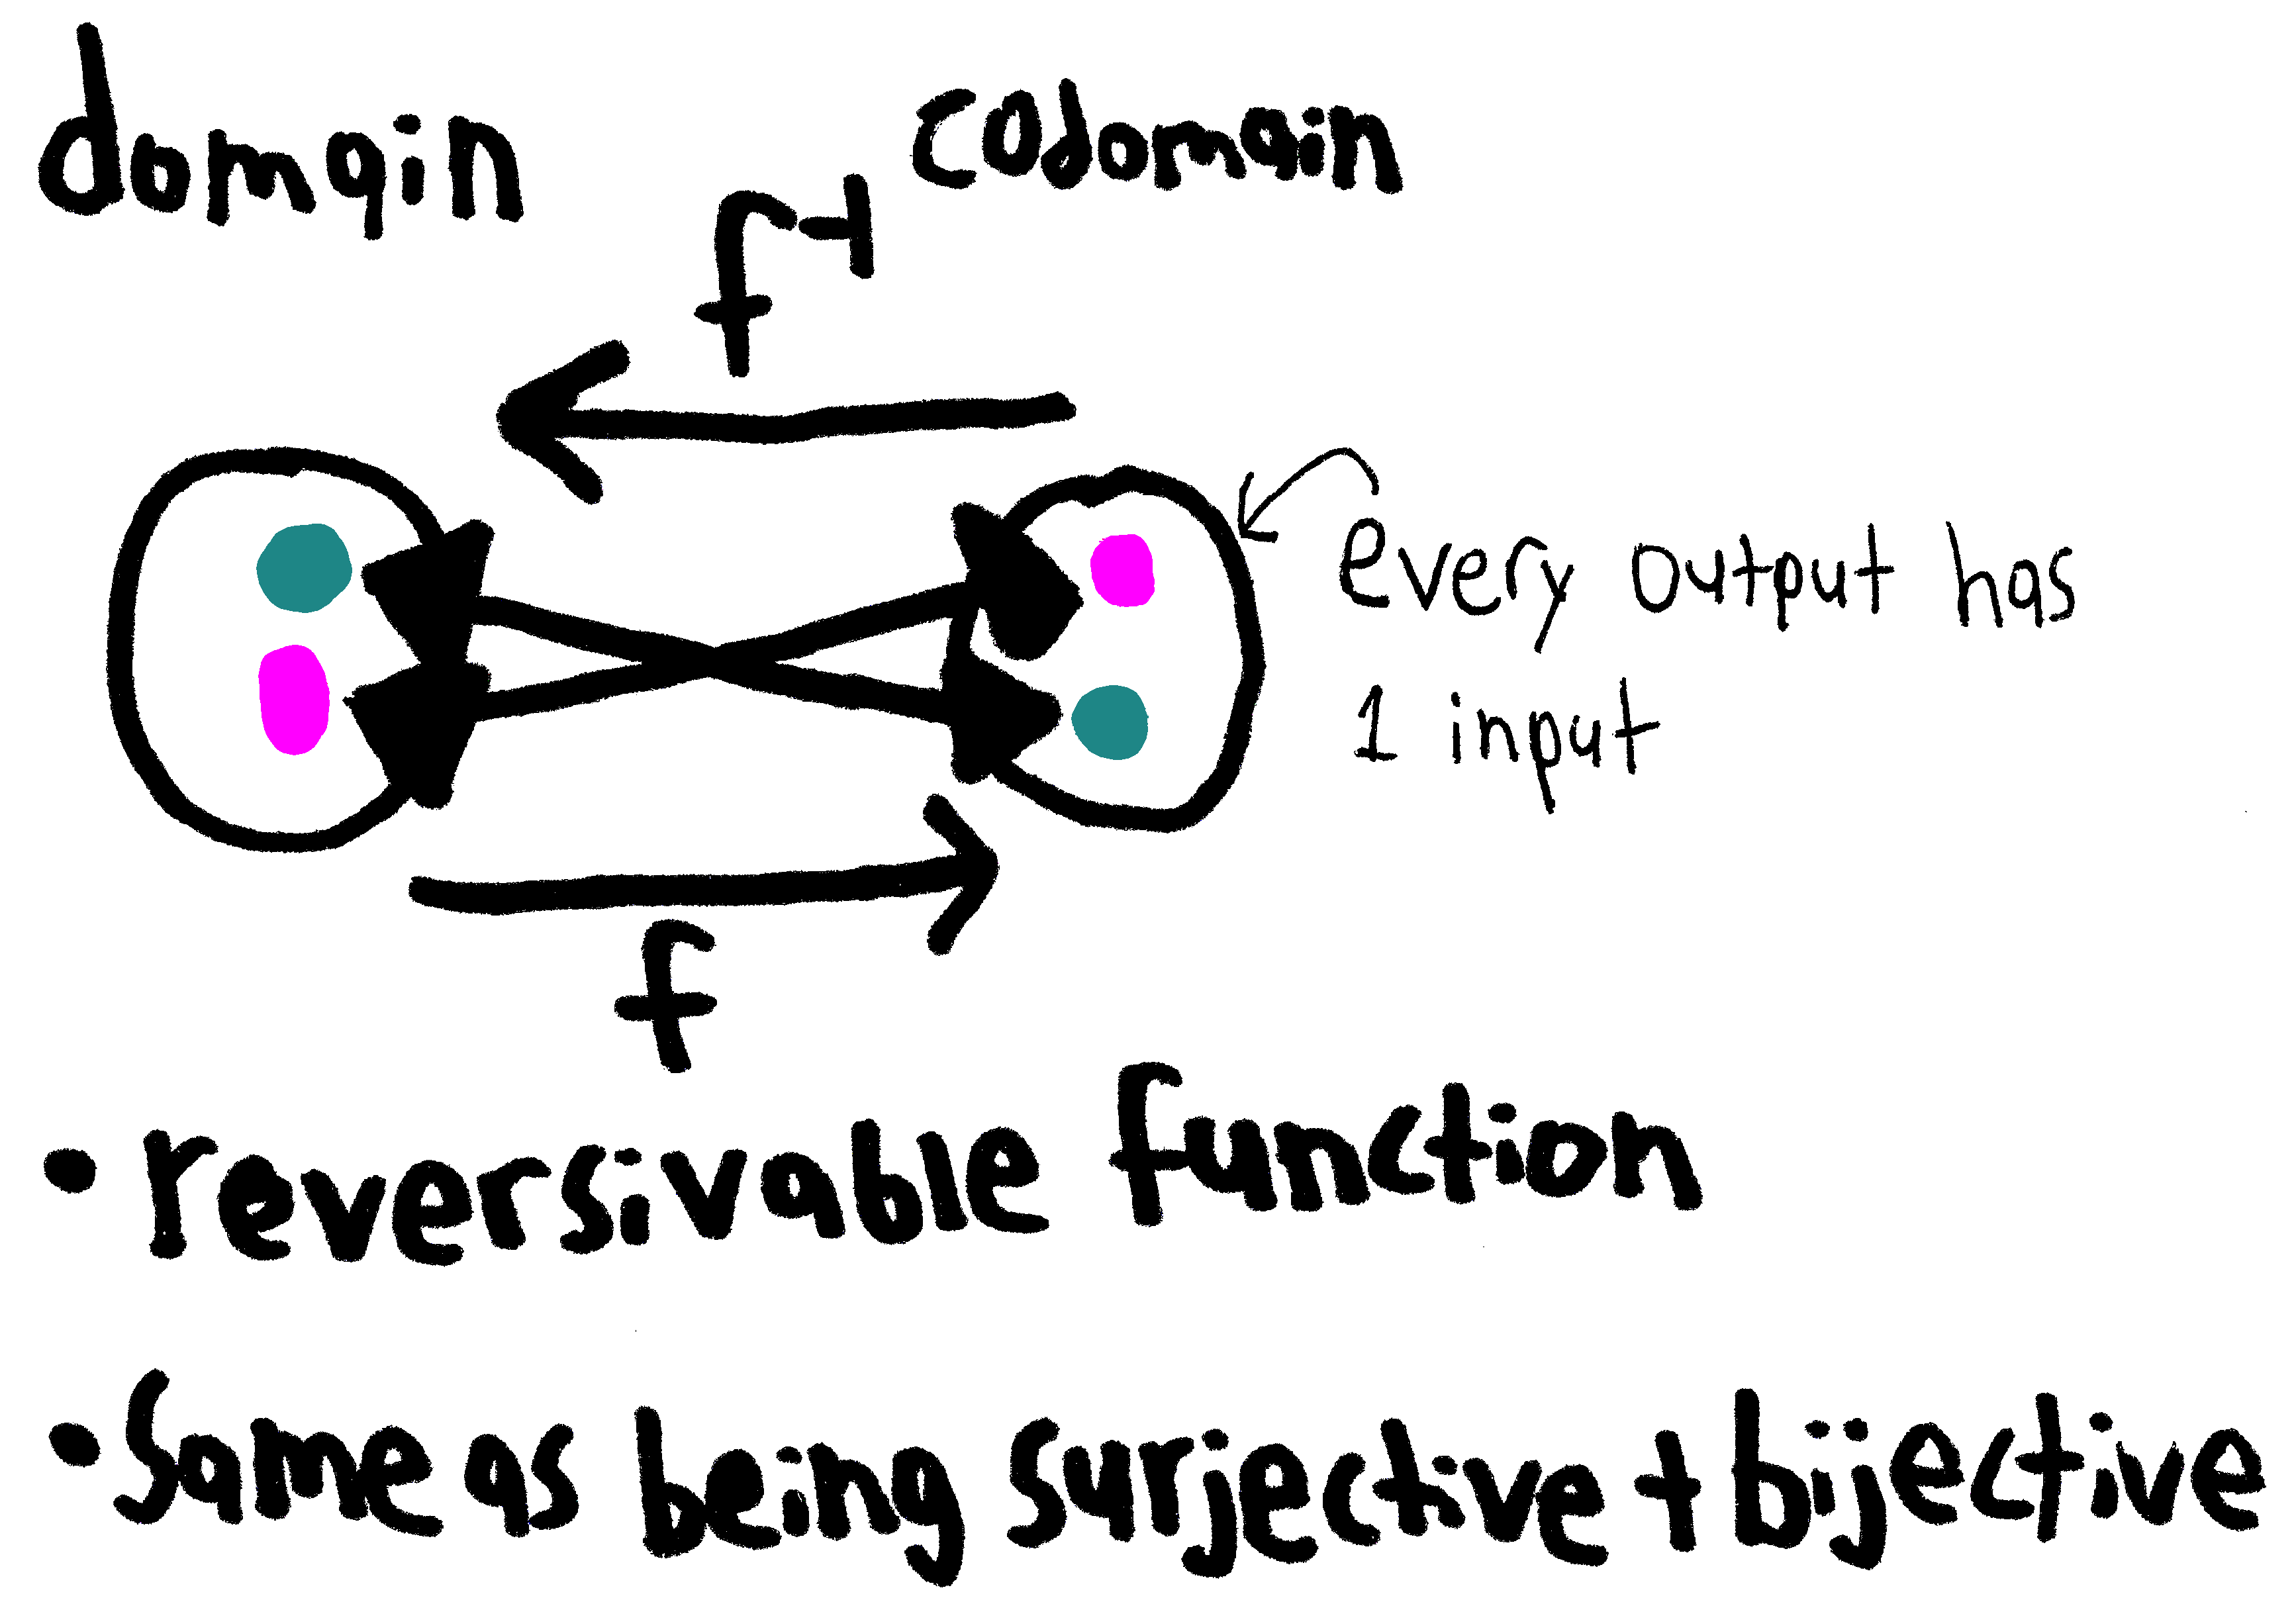 domain
codomain
f⁻¹
every output has
1 input
f
• reversivable function
• Same as being surjective + bijective